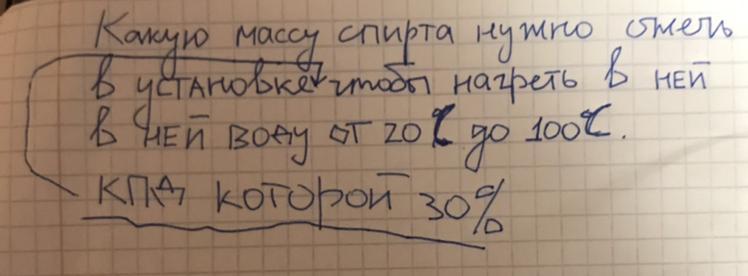 Какую массу спирта нужно сжечь
в установке чтобы нагреть в ней
в ней воду от 20℃ до 100℃.
КПД которой 30%